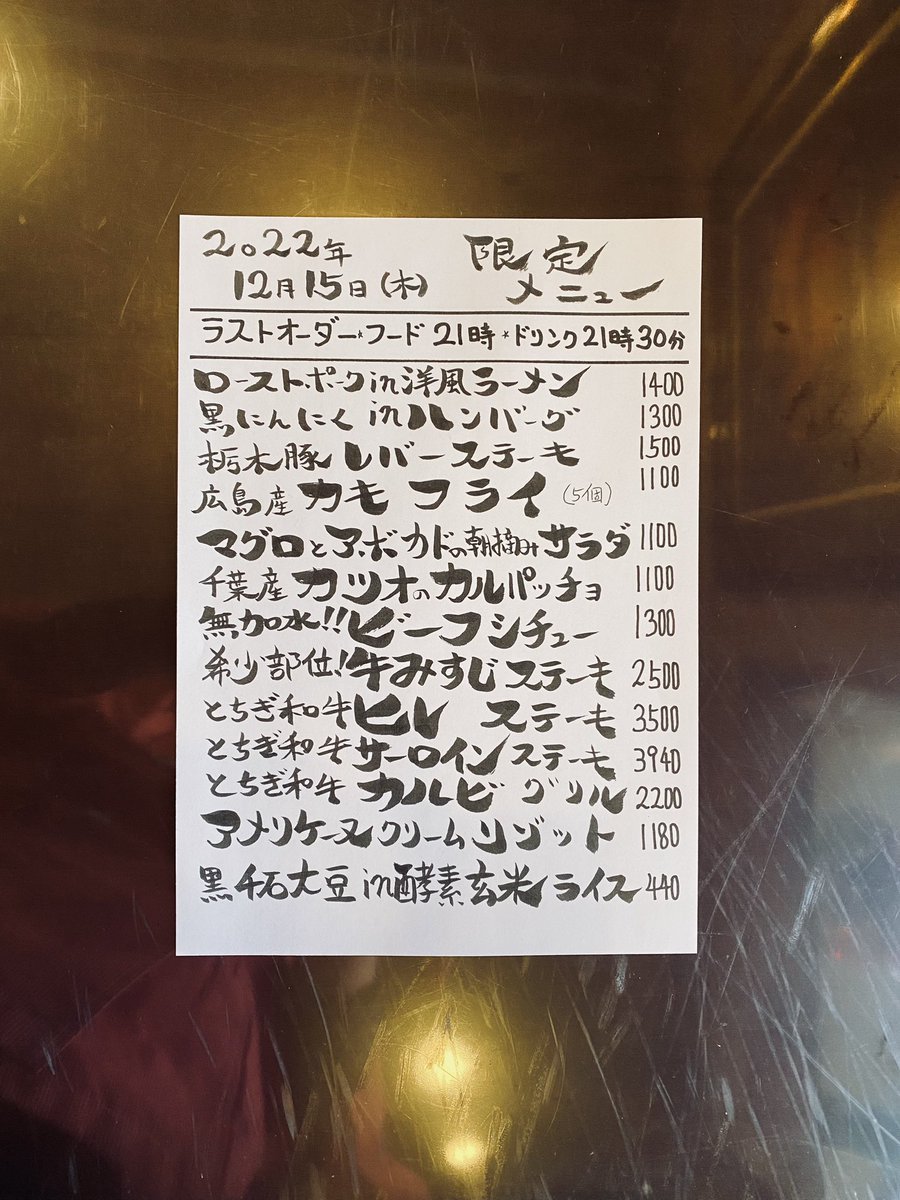 2022年
12月15日(木)
限定
メニュー
ラストオーダー*フード 21時*ドリンク21時30分
ローストポークin洋風ラーメン 1400
黒にんにくinハンバーグ 1300
栃木豚 レバーステーキ 1500
広島産 カキフライ (5個) 1100
マグロとアボカドの朝摘みサラダ 1100
千葉産 カツオのカルパッチョ 1100
無加水!!ビーフシチュー 1300
希少部位!牛みすじステーキ 2500
とちぎ和牛ヒレ ステーキ 3500
とちぎ和牛サーロインステーキ 3940
とちぎ和牛 カルビグリル 2200
アメリケーヌクリームリゾット 1180
黒千石大豆in酵素玄米ライス 440